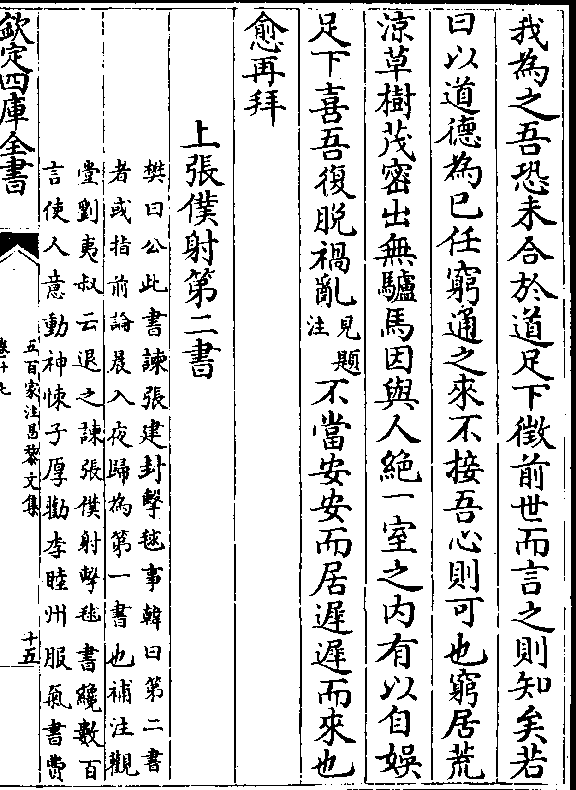 我為之吾恐未合於道足下徴前世而言之則知矣若
曰以道德為已任窮通之來不接吾心則可也窮居荒
涼草樹茂密出無驢馬因與人絶一室之内有以自娛
足下喜吾復脱禍亂見題注不當安安而居遲遲而來也
愈再拜
上張僕射第二書
樊曰公此書諫張建封擊毬事韓曰第二書
者或指前論晨入夜歸為第一書也補注觀
堂劉夷叔云退之諫張僕射擊毬書纔數百
言使人意動神悚子厚勸李睦州服氣書費
欽定四庫全書
五百家注昌黎文集
卷十七
十五